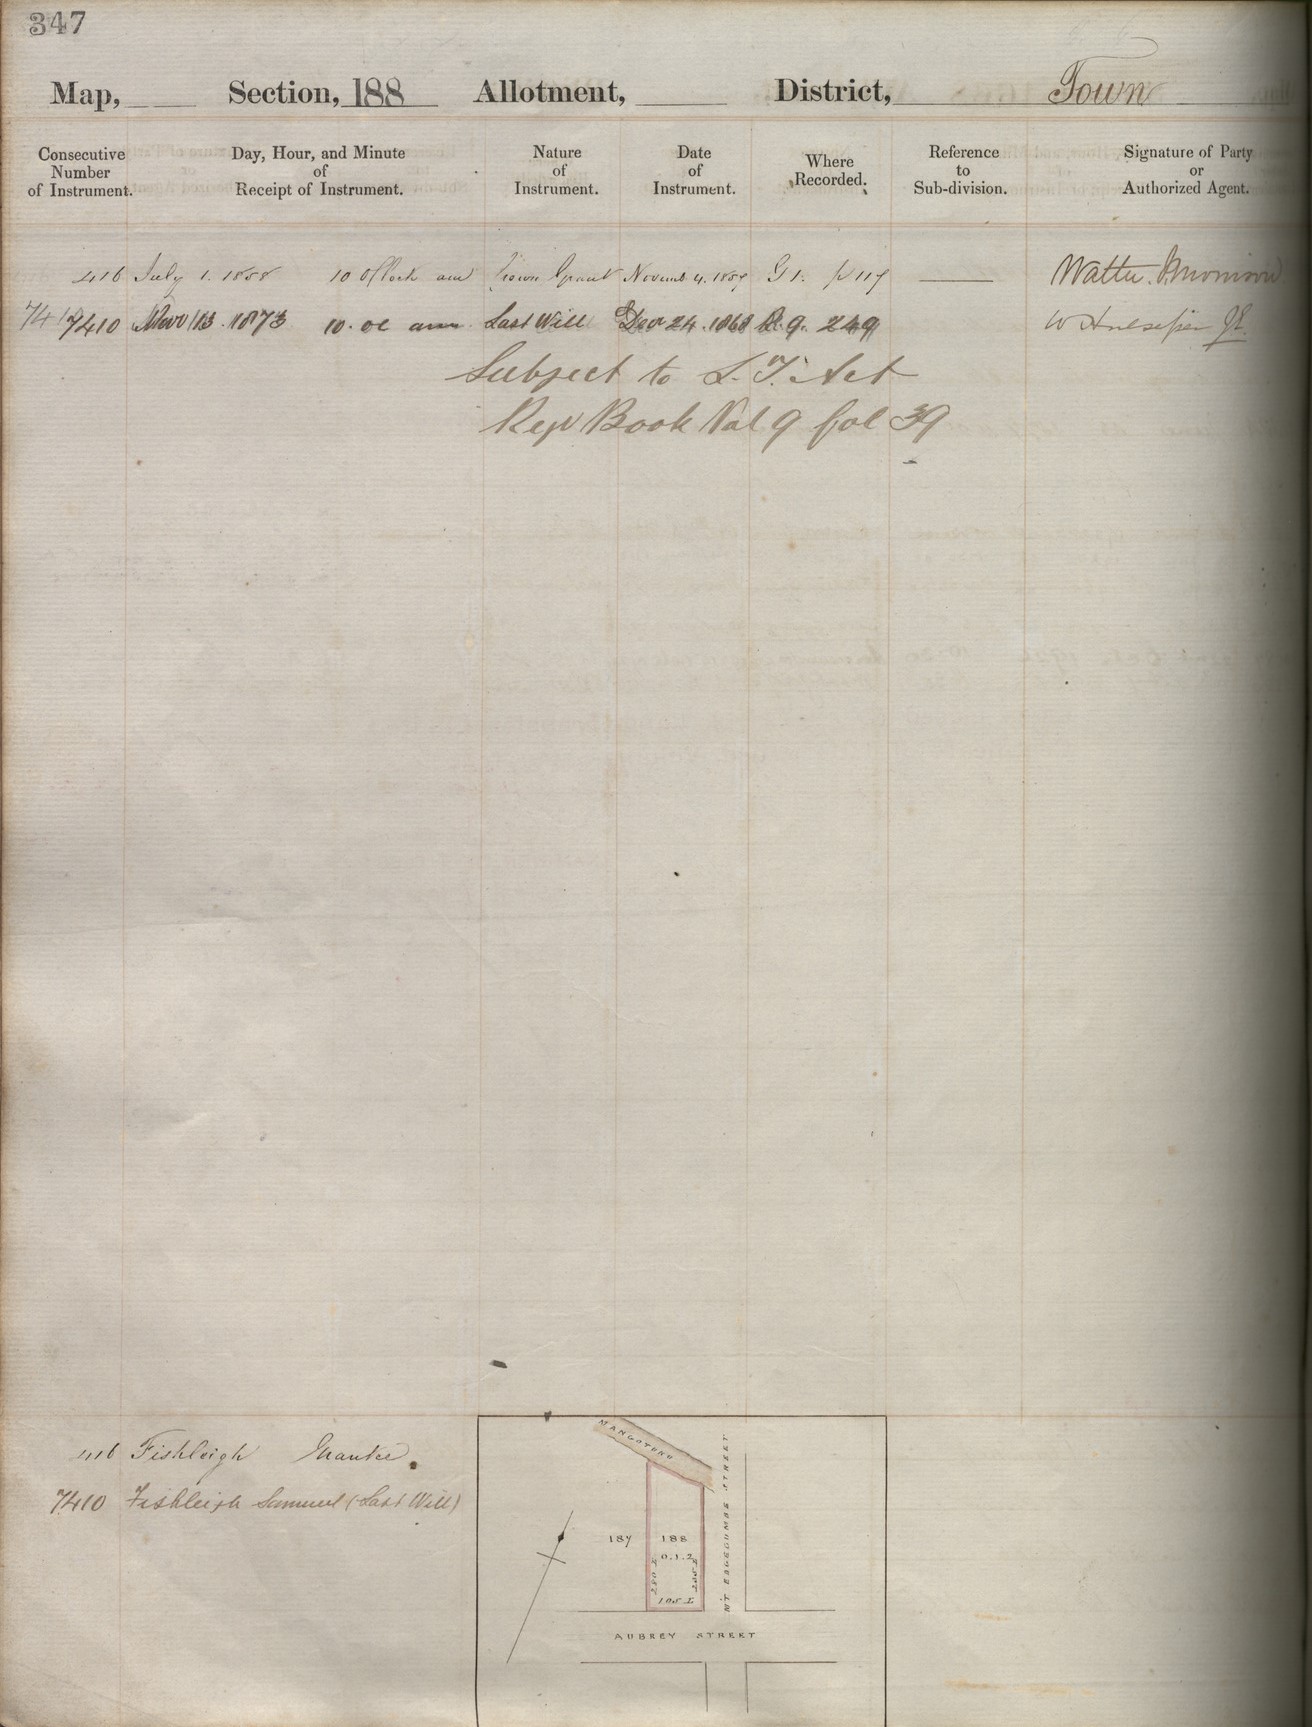 347
Map, Section, 188 Allotment, District, Town
Consecutive Number of Instrument.
Day, Hour, and Minute of Receipt of Instrument.
Nature of Instrument.
Date of Instrument.
Where Recorded.
Reference to Sub-division.
Signature of Party or Authorized Agent.
416 July 1. 1858 10 O'Clock am Crown Grant Novemb 4. 1857 G 1. p 117
7410 Nov 13. 1873 10. oc am Last Will Decr 24. 1868 R. 9. 249
Subject to L. T. Act
Regr Book Vol 9 fol 39
416 Fishleigh Grantee.
7410 Fishleigh Samuel (Last Will)
MANGOTERO
MT EDGECUMBE STREET
187 188
0.1.2
105 L
AUBREY STREET